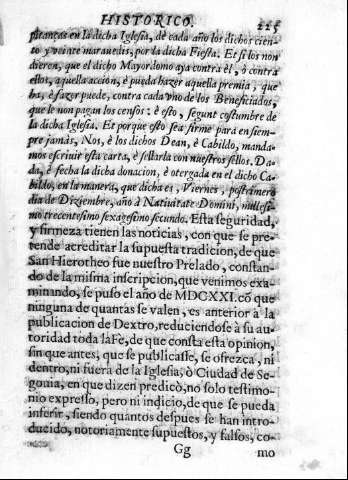 HISTORICO. 225
pitanças en la dicha Iglesia, de cada año los dichos cien-
to y veinte marauedis, por la dicha Fiesta. Et si los non
dieren, que el dicho Mayordomo aya contra èl, ò contra
ellos, aquella accion, è pueda hazer aquella premia, que
ha, è fazer puede, contra cada vno de los Beneficiados,
que le non pagan los censos: è esto, segunt costumbre de
la dicha Iglesia. Et porque esto sea firme para en siem-
pre jamàs, Nos, è los dichos Dean, è Cabildo, manda-
mos escriuir esta carta, è sellarla con nuestros sellos. Da-
da, è fecha la dicha donacion, è otergada en el dicho Ca-
bildo, en la manera, que dicha es, Viernes, postrimero
dia de Diziembre, año à Natiuitate Domini, millesi-
mo trecentesimo sexagesimo secundo. Esta seguridad,
y firmeza tienen las noticias, con que se pre-
tende acreditar la supuesta tradicion, de que
San Hierotheo fue nuestro Prelado, constan-
do de la misma inscripcion, que venimos exa-
minando, se puso el año de MDCXXI. cõ que
ninguna de quantas se valen, es anterior à la
publicacion de Dextro, reduciendose à su au-
toridad toda la Fè, de que consta esta opinion,
sin que antes, que se publicasse, se ofrezca, ni
dentro, ni fuera de la Iglesia, ò Ciudad de Se-
gouia, en que dizen predicò, no solo testimo-
nio expresso, pero ni indicio, de que se pueda
inferir, siendo quantos despues se han intro-
ducido, notoriamente supuestos, y falsos, co-
Gg mo